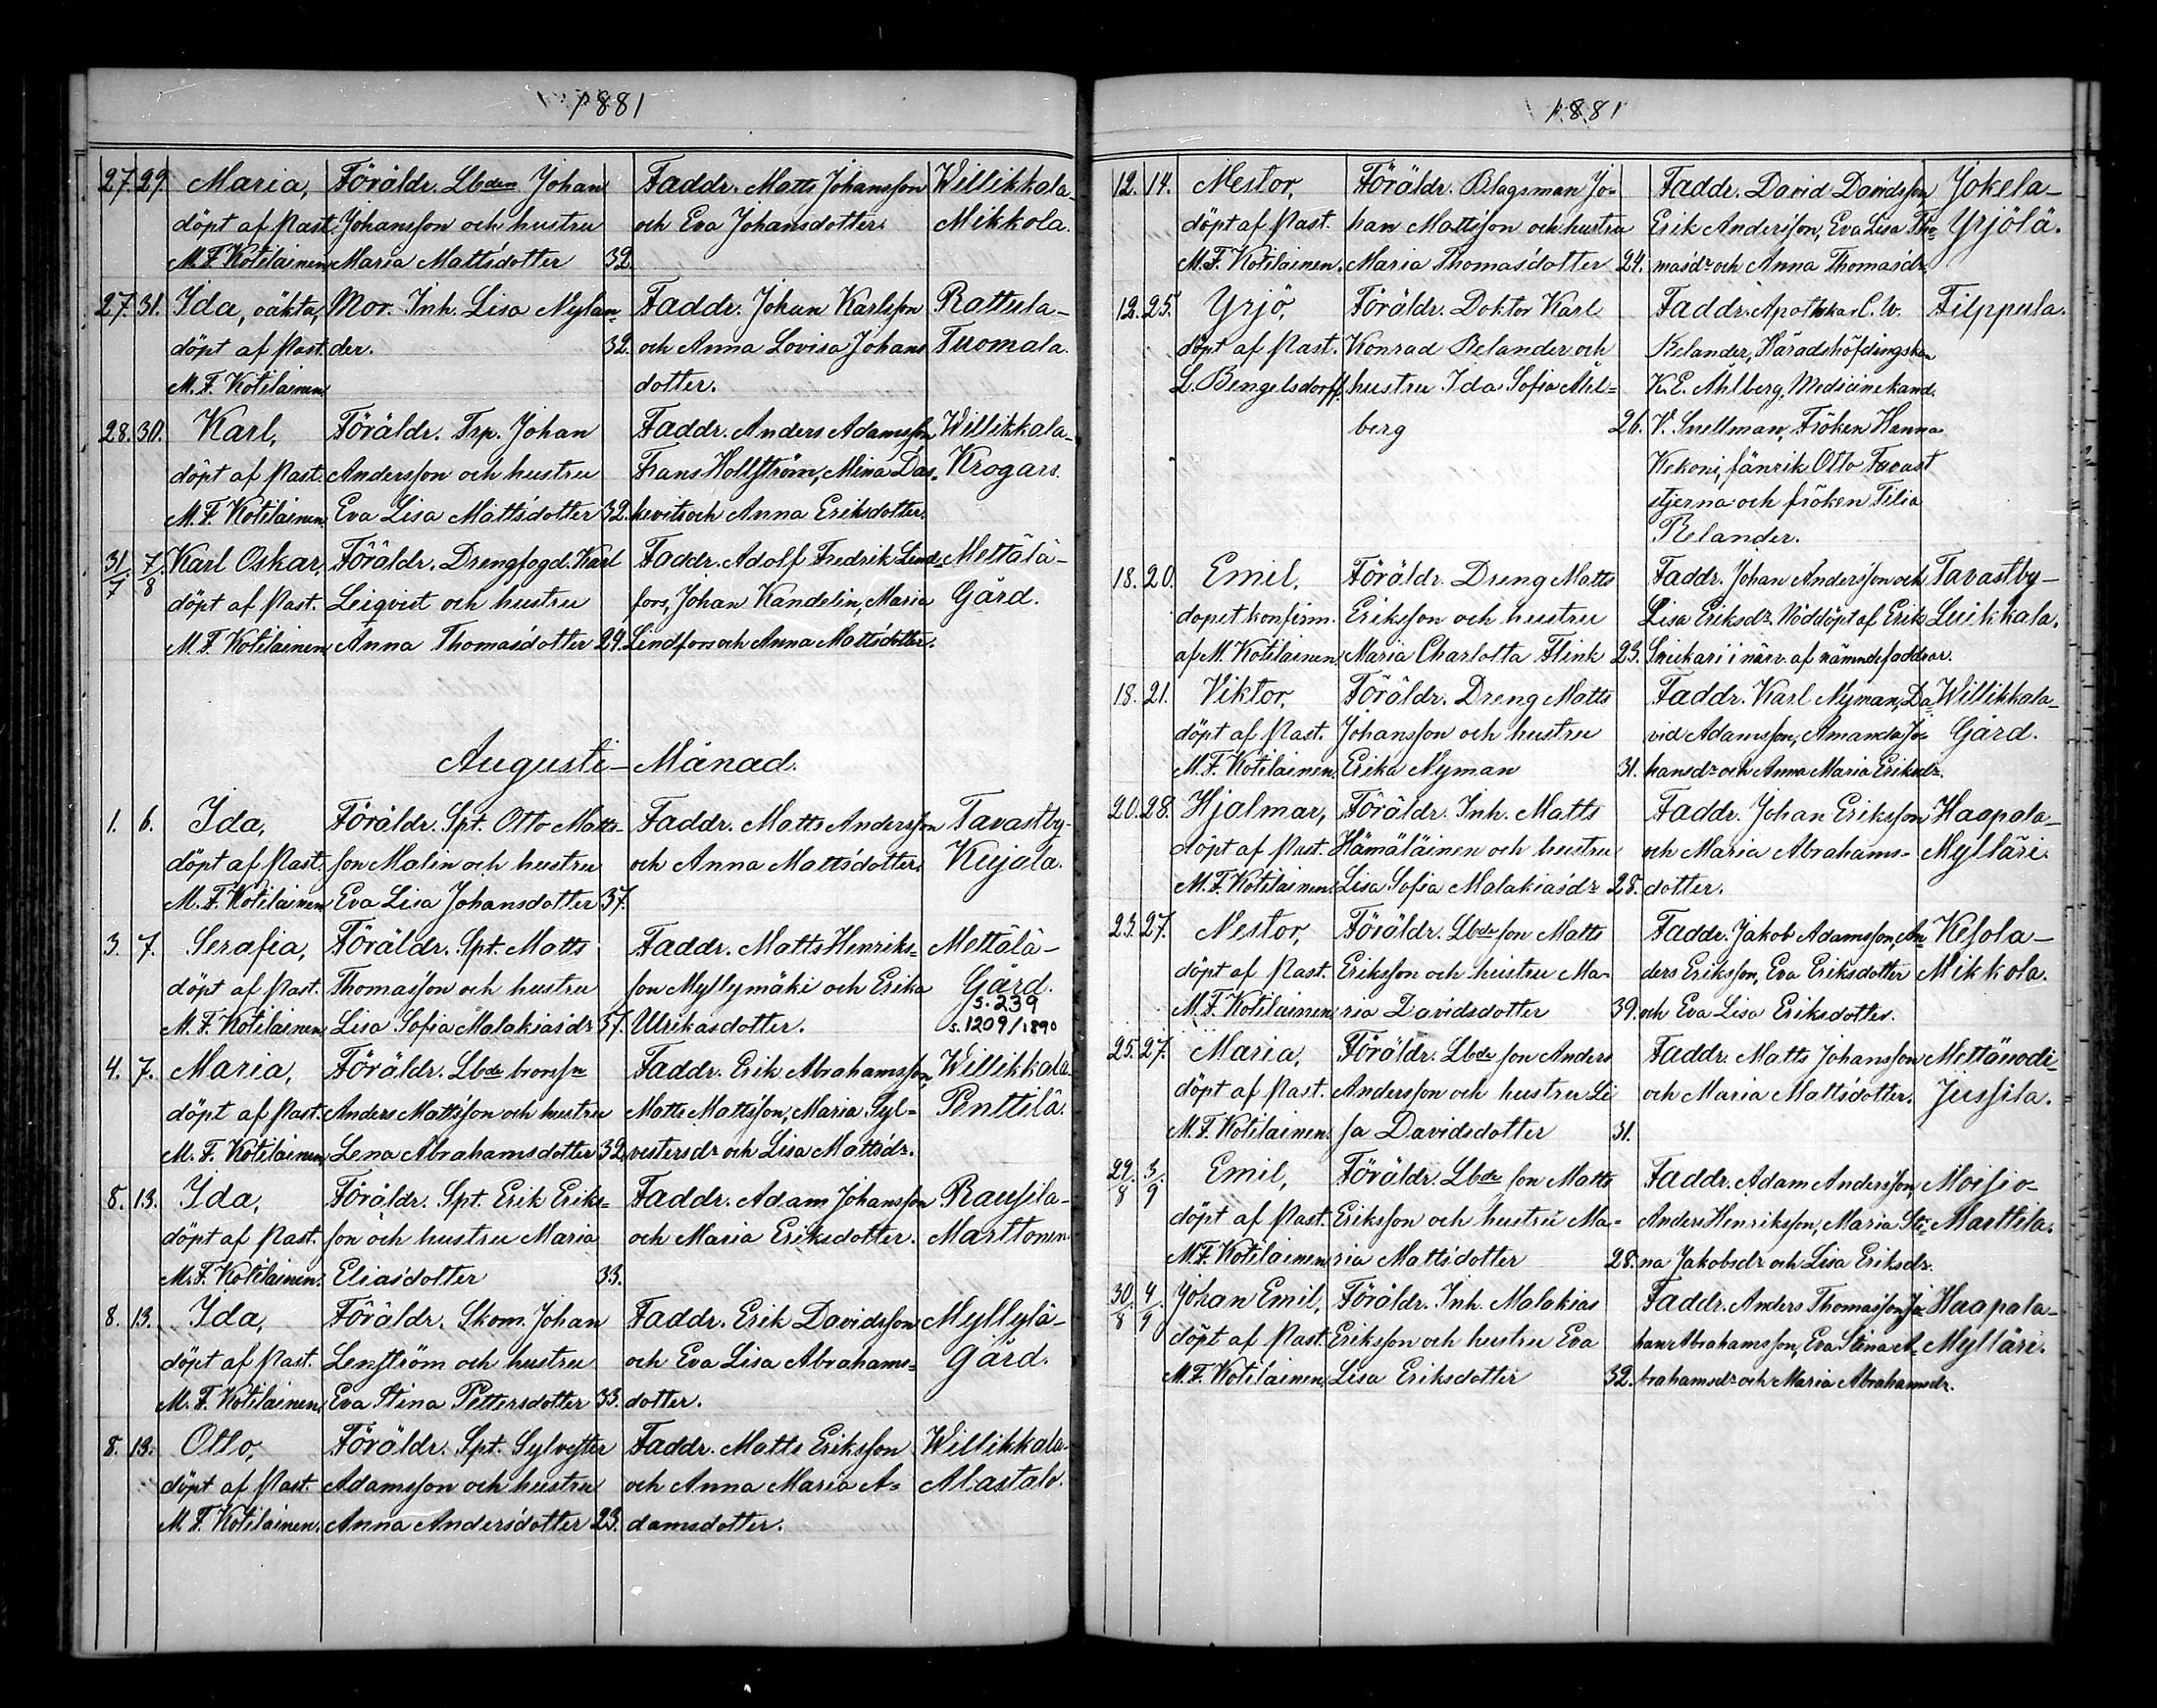 1881
27. 29. Maria, Föräldr. Lbden Johan Faddr. Matts Johansson Willikkala-
döpt af Past. Johansson och hustru och Eva Johansdotter. Mikkola.
M. F. Kotilainen Maria Mattsdotter 32.
27. 31. Ida, oäkta, Mor. Inh. Lisa Nylan- Faddr. Johan Karlsson Rattula-
döpt af Past. der. 32. och Anna Lovisa Johans Tuomala.
M. F. Kotilainen dotter.
28. 30. Karl, Föräldr. Trp. Johan Faddr. Anders Adamsson Willikkala-
döpt af Past. Andersson och hustru Frans Hollström, Mina Das- Krogars.
M. F. Kotilainen. Eva Lisa Mattsdotter 32. kevits och Anna Eriksdotter.
31/7 7/8 Karl Oskar, Föräldr. Drengfogd. Karl Faddr. Adolf Fredrik Lind- Mettälä-
döpt af Past. Leiqvist och hustru fors, Johan Kandelin, Maria Gård.
M. F. Kotilainen Anna Thomasdotter 24. Lindfors och Anna Mattsdotter.
Augusti-Månad.
1. 6. Ida, Föräldr. Spt. Otto Matts- Faddr. Matts Andersson Tavastby-
döpt af Past. son Malin och hustru och Anna Mattsdotter. Kujala.
M. F. Kotilainen Eva Lisa Johansdotter 37.
3. 7. Serafia, Föräldr. Spt. Matts Faddr. Matts Henriks- Mettälä-
döpt af Past. Thomasson och hustru son Myllymäki och Erika Gård.
s. 239
M. F. Kotilainen Lisa Sofia Malakiasdr 37. Ulrikasdotter. s. 1209/1890
4. 7. Maria, Föräldr. Lbde brorsn Faddr. Erik Abrahamsson, Willikkala-
döpt af Past. Anders Mattsson och hustru Matts Mattsson, Maria Syl- Penttilä.
M. F. Kotilainen Lena Abrahamsdotter 32. vestersdr och Lisa Mattsdr.
8. 13. Ida, Föräldr. Spt. Erik Eriks- Faddr. Adam Johansson Rausila-
döpt af Past. son och hustru Maria och Maria Eriksdotter. Marttonen
M. F. Kotilainen. Eliasdotter 33.
8. 13. Ida, Föräldr. Skom. Johan Faddr. Erik Davidsson Myllylä-
döpt af Past. Lenström och hustru och Eva Lisa Abrahams- Gård.
M. F. Kotilainen. Eva Stina Pettersdotter 33. dotter.
8. 13. Otto, Föräldr. Spt. Sylvester Faddr. Matts Eriksson Willikkala-
döpt af Past. Adamsson och hustru och Anna Maria A- Alastalo.
M. F. Kotilainen. Anna Andersdotter 23. damsdotter.
1881
12. 14. Nestor, Föräldr. Blagsman Jo- Faddr. David Davidsson Jokela-
döpt af Past. han Mattsson och hustru Erik Andersson, Eva Lisa Tho- Yrjölä.
M. F. Kotilainen. Maria Thomasdotter 24. masdr och Anna Thomasdr.
12. 25. Yrjö, Föräldr. Doktor Karl Faddr. Apothekar C. W. Filppula.
döpt af Past. Konrad Relander och Relander, Häradshöfdingskan
L. Bengelsdorff. hustru Ida Sofia Ahl- K. E. Ahlberg, Medicinekand.
berg 26. V. Snellman, Fröken Hanna
Kekoni, fänrik Otto Tavast
stjerna och fröken Tilia
Relander.
18. 20. Emil, Föräldr. Dreng Matts Faddr. Johan Andersson och Tavastby-
dopet konfirm. Eriksson och hustru Lisa Eriksdr. Nöddöpt af Erik Luikkala.
af M. Kotilainen Maria Charlotta Flink 23. Sniekari i närv. af nämnde faddrar.
18. 21. Viktor, Föräldr. Dreng Matts Faddr. Karl Nyman, Da- Willikkala-
döpt af Past. Johansson och hustru vid Adamsson, Amanda Jo- Gård.
M. F. Kotilainen. Erika Nyman 31. hansdr och Anna Maria Eriksdr.
20. 28. Hjalmar, Föräldr. Inh. Matts Faddr. Johan Eriksson Haapala-
döpt af Past. Hämäläinen och hustru och Maria Abrahams- Mylläri.
M. F. Kotilainen. Lisa Sofia Malakiasdr 28. dotter.
23. 27. Nestor, Föräldr. Lbde son Matts Faddr. Jakob Adamsson, An Kesola-
döpt af Past. Eriksson och hustru Ma- ders Eriksson, Eva Eriksdotter Mikkola.
M. F. Kotilainen ria Davidsdotter 39. och Eva Lisa Eriksdotter.
25. 27. Maria, Föräldr. Lbde son Anders Faddr. Matts Johansson Mettänodi-
döpt af Past. Andersson och hustru Li och Maria Mattsdotter. Jussila.
M. F. Kotilainen. sa Davidsdotter 31.
29/8 3/9 Emil, Föräldr. Lbde son Matts Faddr. Adam Andersson, Moisio-
döpt af Past. Eriksson och hustru Ma- Anders Henriksson, Maria Sti- Marttila.
M. F. Kotilainen ria Mattsdotter 28. na Jakobsdr och Lisa Eriksdr.
30/8 4/9 Johan Emil, Föräldr. Inh. Malakias Faddr. Anders Thomasson, Jo- Haapala-
döpt af Past. Eriksson och hustru Eva han Abrahamsson, Eva Stina A- Mylläri.
M. F. Kotilainen, Lisa Eriksdotter 32. brahamsdr och Maria Abrahamsdr.